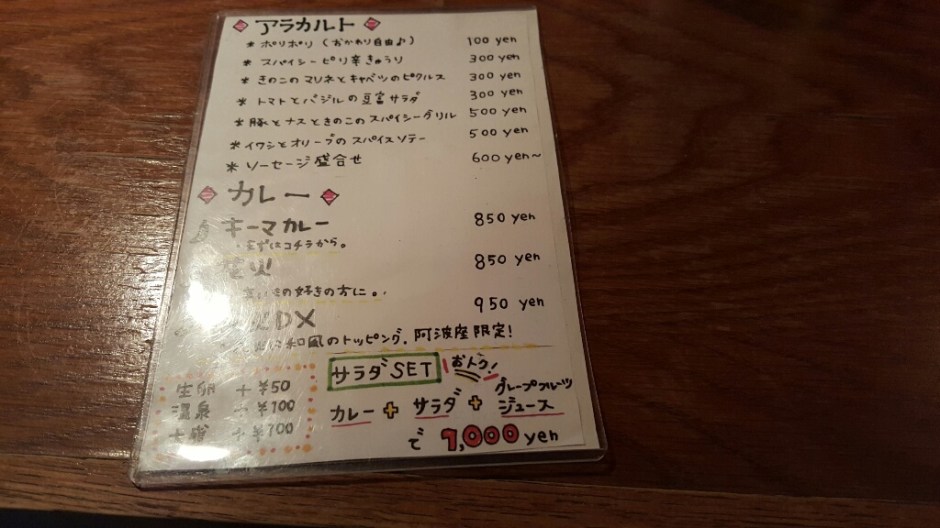 アラカルト
* ポリポリ (おかわり自由♪) 100 yen
* スパイシーピリ辛きゅうり 300 yen
* きのこのマリネとキャベツのピクルス 300 yen
* トマトとバジルの豆富サラダ 300 yen
* 豚とナスときのこのスパイシーグリル 500 yen
* イワシとオリーブのスパイスソテー 500 yen
* ソーセージ盛合せ 600 yen~
カレー
キーマカレー 850 yen
まずはコチラから。
火 850 yen
もの好きの方に。
DX 950 yen
和風のトッピング。阿波座限定!
サラダSET おトク!
カレー + サラダ + グレープフルーツジュース
で 1,000 yen
生卵 +¥50
温泉 +¥100
+¥100